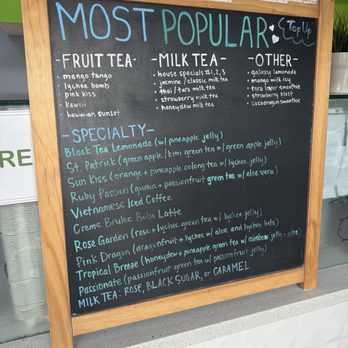 MOST POPULAR:
Top Up
-FRUIT TEA-
mango tango
lychee bomb
pink kiss
kawaii
hawaiian sunset
-MILK TEA-
house specials #1,2,3
jasmine / classic milk tea
thai / taro milk tea
strawberry milk tea
honeydew milk tea
-OTHER-
galaxy lemonade
mango milk icy
taro smoothie
strawberry blast
smoothie
-SPECIALTY-
Black Tea Lemonade (w/ pineapple jelly)
St. Patrick (green apple/kiwi green tea w/ green apple jelly)
Sun Kiss (orange + pineapple oolong tea w/ lychee jelly)
Ruby Passion (guava + passionfruit green tea w/ aloe vera)
Vietnamese Iced Coffee
Creme Brulee Boba Latte
Rose Garden (rose + lychee green tea w/ lychee jelly)
Pink Dragon (dragonfruit + lychee w/ aloe and lychee bits)
Tropical Breeze (honeydew pineapple green tea w/ rainbow jelly + aloe)
Passionate (passionfruit green tea w/ passionfruit jelly)
MILK TEA: ROSE, BLACK SUGAR, or CARAMEL
RE